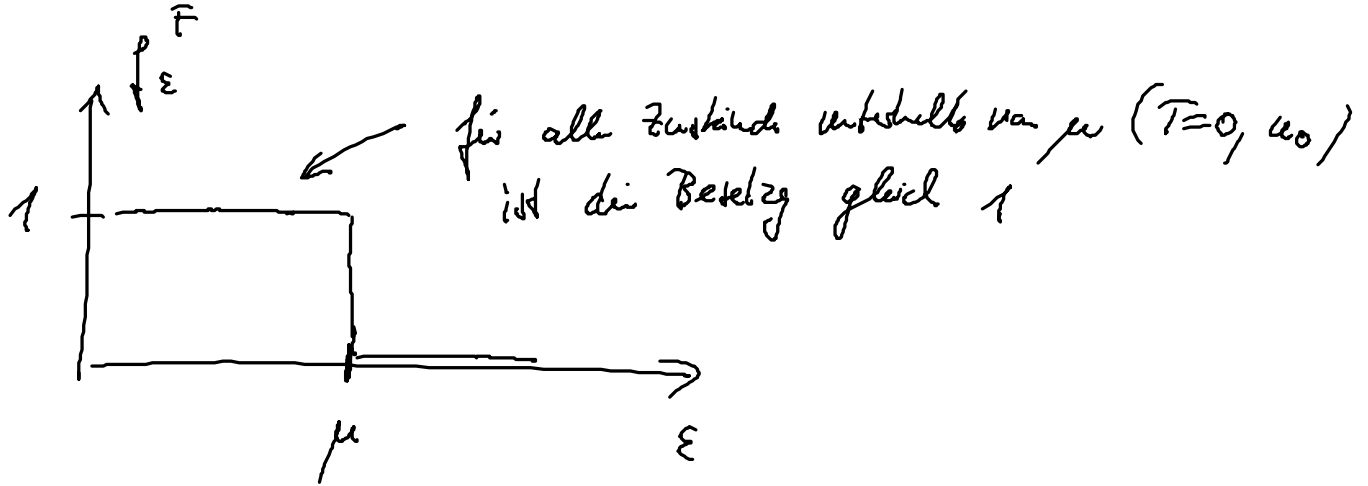 f F
ε
für alle Zustände unterhalb von μ (T=0, n₀)
1
ist die Besetzg gleich 1
μ
ε